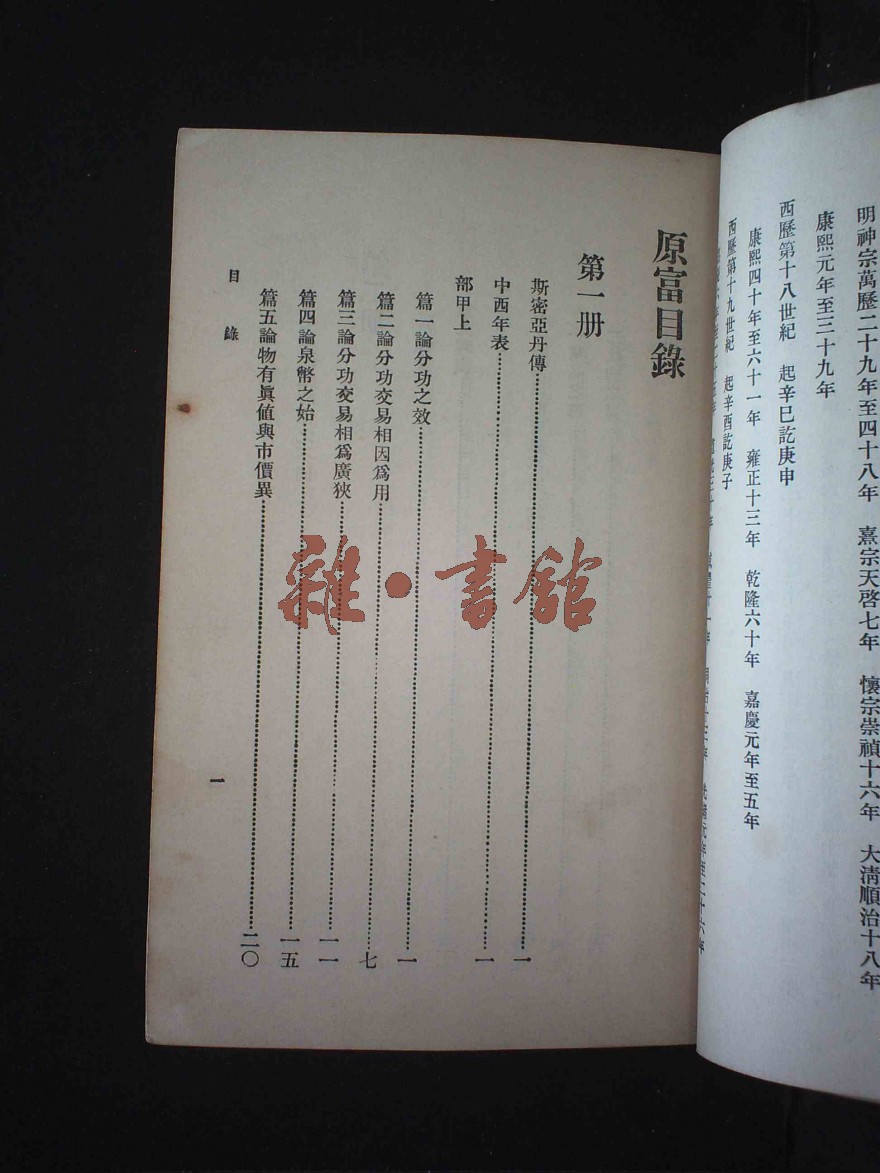 明神宗萬歷二十九年至四十八年　熹宗天啓七年　懷宗崇禎十六年　大清順治十八年
康熙元年至三十九年
西歷第十八世紀　起辛巳訖庚申
康熙四十年至六十一年　雍正十三年　乾隆六十年　嘉慶元年至五年
西歷第十九世紀　起辛酉訖庚子
原富目錄
第一册
斯密亞丹傳……一
中西年表……一
部甲上
篇一論分功之效……一
篇二論分功交易相因爲用……七
篇三論分功交易相爲廣狹……一一
篇四論泉幣之始……一五
篇五論物有眞値與市價異……二〇
目錄
一
雜·書館